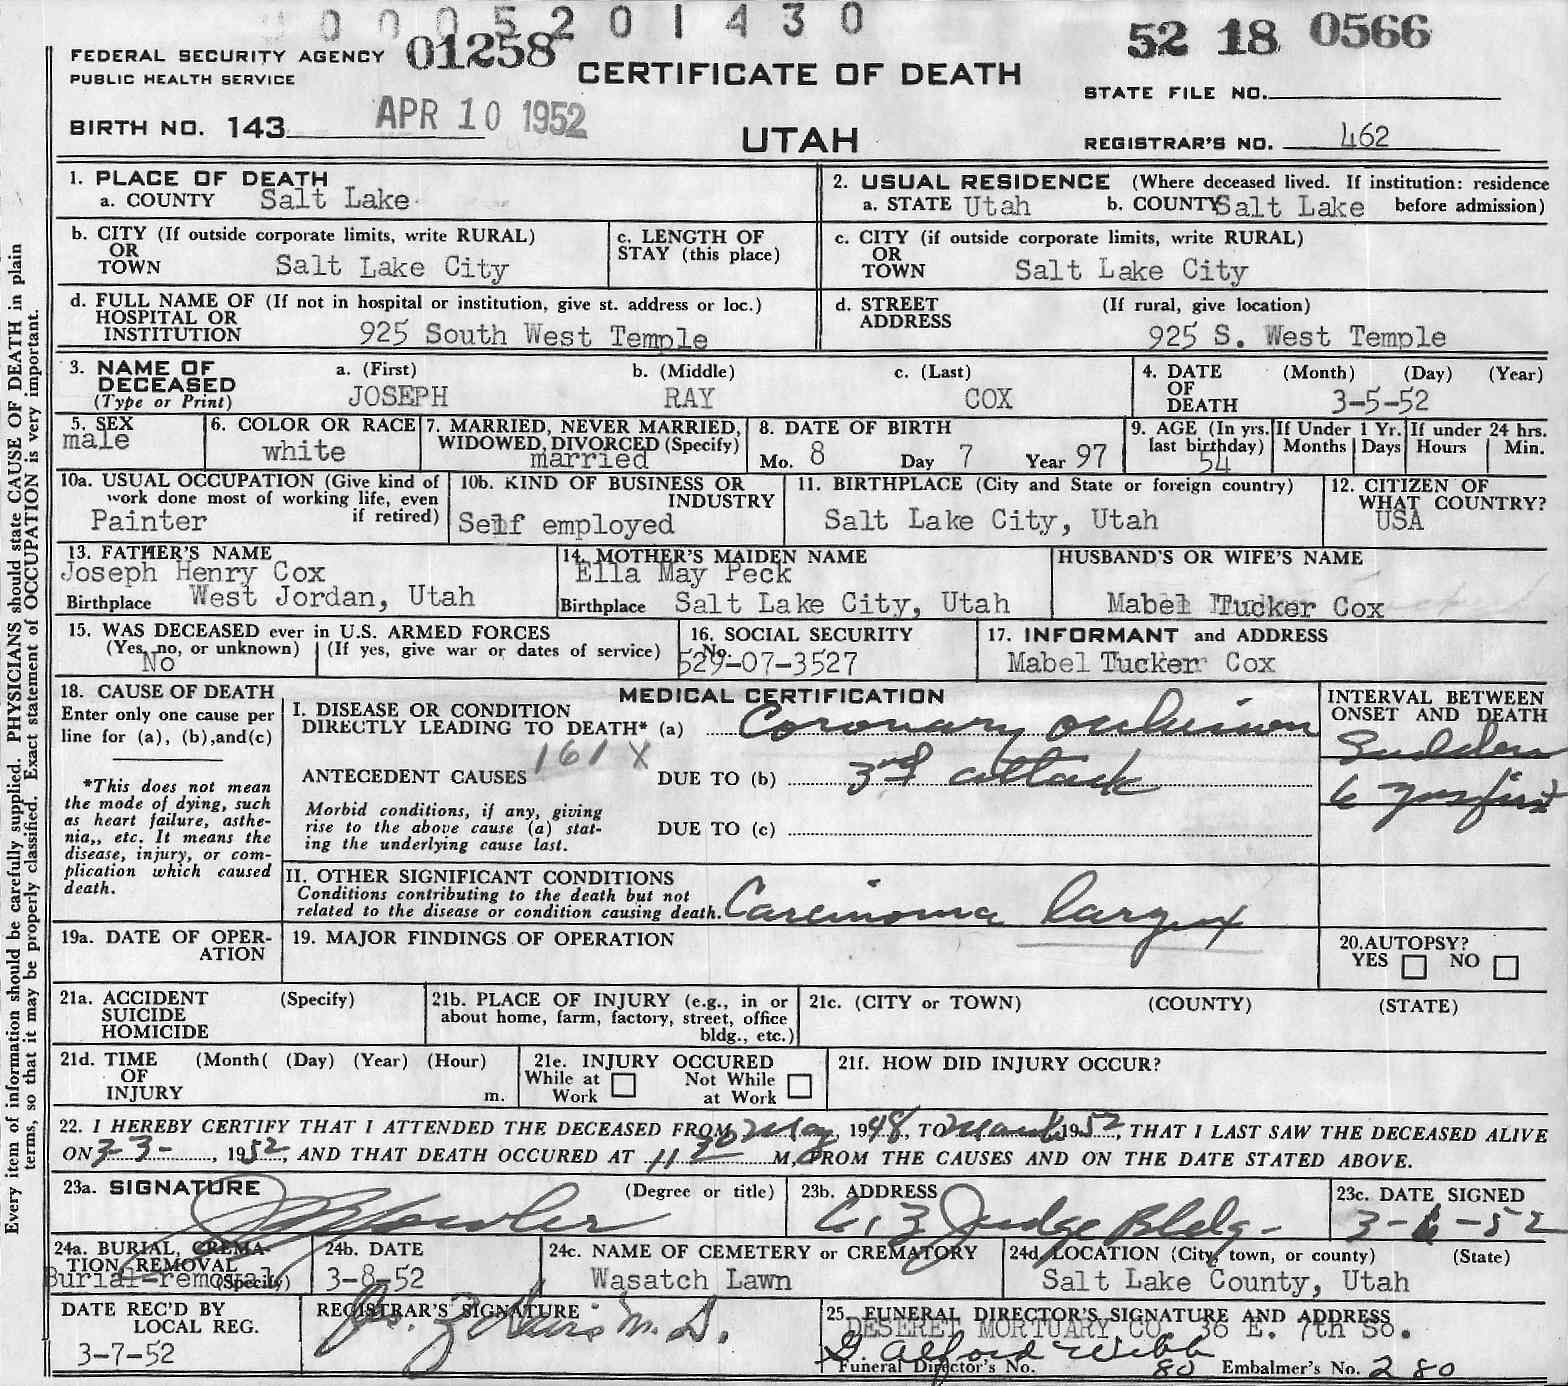 0 0 0 5 2 0 1 4 3 0
FEDERAL SECURITY AGENCY 01258
PUBLIC HEALTH SERVICE
CERTIFICATE OF DEATH
52 18 0566
STATE FILE NO.
BIRTH NO. 143 APR 10 1952
UTAH
REGISTRAR'S NO. 462
1. PLACE OF DEATH
a. COUNTY Salt Lake
2. USUAL RESIDENCE (Where deceased lived. If institution: residence
a. STATE Utah b. COUNTY Salt Lake before admission)
b. CITY (If outside corporate limits, write RURAL)
OR
TOWN Salt Lake City
c. LENGTH OF
STAY (this place)
c. CITY (if outside corporate limits, write RURAL)
OR
TOWN Salt Lake City
d. FULL NAME OF (If not in hospital or institution, give st. address or loc.)
HOSPITAL OR
INSTITUTION 925 South West Temple
d. STREET (If rural, give location)
ADDRESS 925 S. West Temple
3. NAME OF
DECEASED
(Type or Print)
a. (First) b. (Middle) c. (Last)
JOSEPH RAY COX
4. DATE (Month) (Day) (Year)
OF
DEATH 3-5-52
5. SEX
male
6. COLOR OR RACE
white
7. MARRIED, NEVER MARRIED,
WIDOWED, DIVORCED (Specify)
married
8. DATE OF BIRTH
Mo. 8 Day 7 Year 97
9. AGE (In yrs.
last birthday)
54
If Under 1 Yr.
Months Days
If under 24 hrs.
Hours Min.
10a. USUAL OCCUPATION (Give kind of
work done most of working life, even
if retired)
Painter
10b. KIND OF BUSINESS OR
INDUSTRY
Self employed
11. BIRTHPLACE (City and State or foreign country)
Salt Lake City, Utah
12. CITIZEN OF
WHAT COUNTRY?
USA
13. FATHER'S NAME
Joseph Henry Cox
Birthplace West Jordan, Utah
14. MOTHER'S MAIDEN NAME
Ella May Peck
Birthplace Salt Lake City, Utah
HUSBAND'S OR WIFE'S NAME
Mabel Tucker Cox
15. WAS DECEASED ever in U.S. ARMED FORCES
(Yes, no, or unknown) (If yes, give war or dates of service)
No
16. SOCIAL SECURITY
No.
529-07-3527
17. INFORMANT and ADDRESS
Mabel Tucker Cox
18. CAUSE OF DEATH
Enter only one cause per
line for (a), (b),and(c)
*This does not mean
the mode of dying, such
as heart failure, asthe-
nia,, etc. It means the
disease, injury, or com-
plication which caused
death.
MEDICAL CERTIFICATION
I. DISEASE OR CONDITION
DIRECTLY LEADING TO DEATH* (a) Coronary occlusion
161X
ANTECEDENT CAUSES DUE TO (b) 3rd attack
Morbid conditions, if any, giving
rise to the above cause (a) stat-
ing the underlying cause last.
DUE TO (c)
INTERVAL BETWEEN
ONSET AND DEATH
Sudden
6 yrs first
II. OTHER SIGNIFICANT CONDITIONS
Conditions contributing to the death but not
related to the disease or condition causing death. Carcinoma larynx
19a. DATE OF OPER-
ATION
19. MAJOR FINDINGS OF OPERATION
20.AUTOPSY?
YES NO
21a. ACCIDENT (Specify)
SUICIDE
HOMICIDE
21b. PLACE OF INJURY (e.g., in or
about home, farm, factory, street, office
bldg., etc.)
21c. (CITY or TOWN) (COUNTY) (STATE)
21d. TIME (Month( (Day) (Year) (Hour)
OF
INJURY m.
21e. INJURY OCCURED
While at Work
Not While at Work
21f. HOW DID INJURY OCCUR?
22. I HEREBY CERTIFY THAT I ATTENDED THE DECEASED FROM May, 1948, TO March 1952, THAT I LAST SAW THE DECEASED ALIVE
ON 3-3-, 1952, AND THAT DEATH OCCURED AT 11 30 M, FROM THE CAUSES AND ON THE DATE STATED ABOVE.
23a. SIGNATURE (Degree or title)
Fowler
23b. ADDRESS
613 Judge Bldg-
23c. DATE SIGNED
3-6-52
24a. BURIAL, CREMA-
TION, REMOVAL
(Specify)
Burial-removal
24b. DATE
3-8-52
24c. NAME OF CEMETERY OR CREMATORY
Wasatch Lawn
24d. LOCATION (City, town, or county) (State)
Salt Lake County, Utah
DATE REC'D BY
LOCAL REG.
3-7-52
REGISTRAR'S SIGNATURE
M.D.
25. FUNERAL DIRECTOR'S SIGNATURE AND ADDRESS
DESERET MORTUARY CO. 36 E. 7th So.
G. Alford Webb
Funeral Director's No. 80 Embalmer's No. 280
Every item of information should be carefully supplied. PHYSICIANS should state CAUSE OF DEATH in plain
terms, so that it may be properly classified. Exact statement of OCCUPATION is very important.